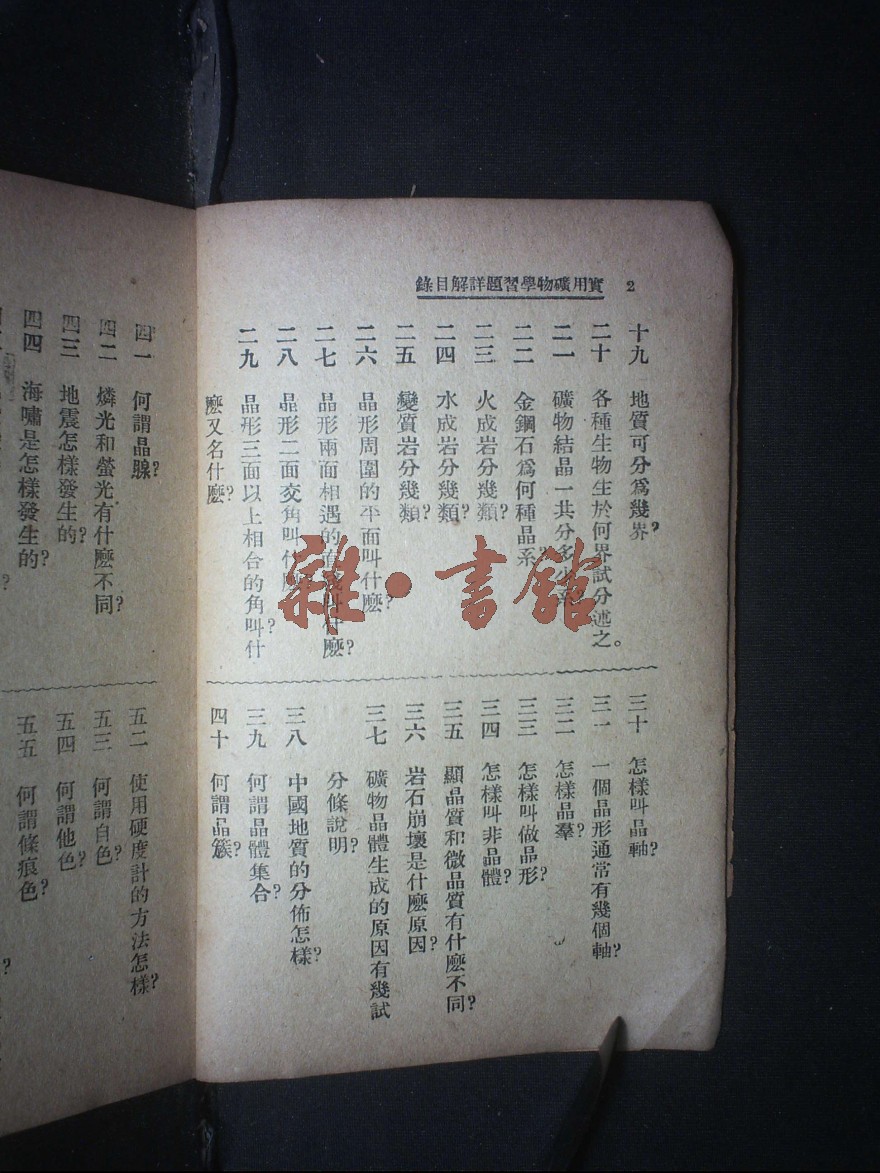 實用礦物學習題詳解目錄 2
十九 地質可分爲幾界?
二十 各種生物生於何界試分述之。
二一 礦物結晶一共分多少系?
二二 金鋼石爲何種晶系?
二三 火成岩分幾類?
二四 水成岩分幾類?
二五 變質岩分幾類?
二六 晶形周圍的平面叫什麽?
二七 晶形兩面相遇的直線叫什麽?
二八 晶形二面交角叫什麽?
二九 晶形三面以上相合的角叫什
麽又名什麽?
三十 怎樣叫晶軸?
三一 一個晶形通常有幾個軸?
三二 怎樣晶羣?
三三 怎樣叫做晶形?
三四 怎樣叫非晶體?
三五 顯晶質和微晶質有什麽不同?
三六 岩石崩壞是什麽原因?
三七 礦物晶體生成的原因有幾試
分條說明?
三八 中國地質的分佈怎樣?
三九 何謂晶體集合?
四十 何謂晶簇?
四一 何謂晶腺?
四二 燐光和螢光有什麽不同?
四三 地震怎樣發生的?
四四 海嘯是怎樣發生的?
五二 使用硬度計的方法怎樣?
五三 何謂自色?
五四 何謂他色?
五五 何謂條痕色?
雜·書館